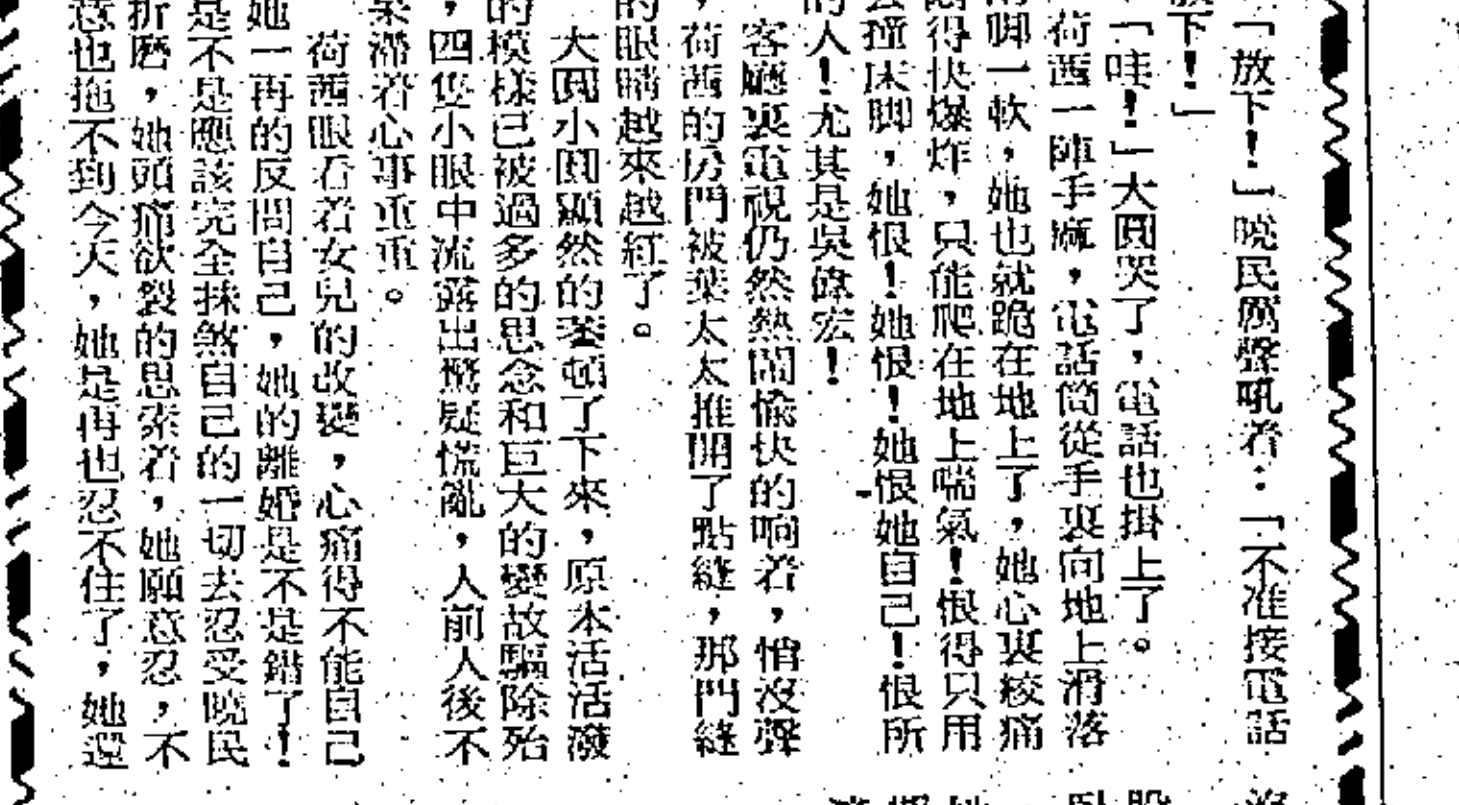 「放下！」曉民厲聲吼着：「不准接電話
放下！」
「哇！」大圓哭了，電話也掛上了。
荷茜一陣手麻，電話筒從手裏向地上滑落
兩脚一軟，她也就跪在地上了，她心裏絞痛
得快爆炸，只能爬在地上喘氣！恨得只用
去撞床脚，她恨！她恨！她恨她自己！恨所
的人！尤其是吳偉宏！
客廳裏電視仍然熱鬧愉快的响着，悄沒聲
，荷茜的房門被葉太太推開了點縫，那門縫
的眼睛越來越紅了。
大圓小圓顯然的萎頓了下來，原本活活潑
的模樣已被過多的思念和巨大的變故驅除殆
，四隻小眼中流露出驚疑慌亂，人前人後不
滯着心事重重。
荷茜眼看着女兒的改變，心痛得不能自己
她一再的反問自己，她的離婚是不是錯了！
是不是應該完全抹煞自己的一切去忍受曉民
折磨，她頭痛欲裂的思索着，她願意忍，不
意也拖不到今天，她是再也忍不住了，她還